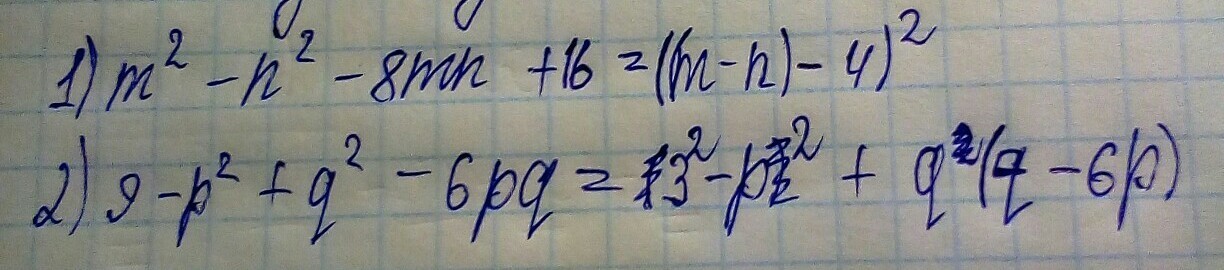 1) m² - n² - 8mn + 16 = ((m - n) - 4)²
2) 9 - p² + q² - 6pq = 3² - p² + q(q - 6p)